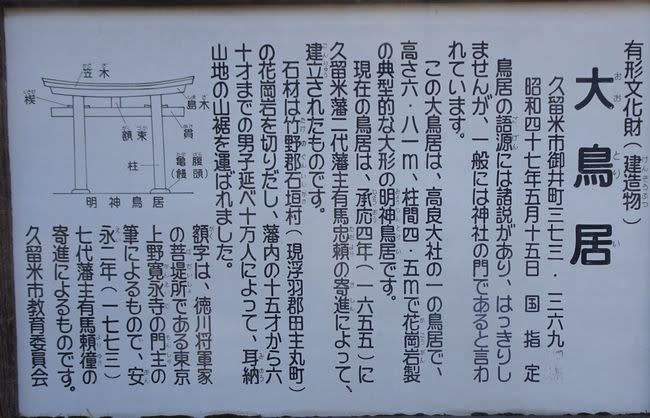 有形文化財(建造物)
大鳥居
久留米市御井町三七三・三六九
昭和四十七年五月十五日 国指定
鳥居の語源には諸説があり、はっきりし
ませんが、一般には神社の門であると言わ
れています。
この大鳥居は、高良大社の一の鳥居で、
高さ六・八一m、柱間四・五mで花崗岩製
の典型的な大形の明神鳥居です。
現在の鳥居は、承応四年(一六五五)に
久留米藩二代藩主有馬忠頼の寄進によって、
建立されたものです。
石材は竹野郡石垣村(現浮羽郡田主丸町)
の花崗岩を切りだし、藩内の十五才から六
十才までの男子延べ十万人によって、耳納
山地の山裾を運ばれました。
額字は、徳川将軍家
の菩提所である東京
上野寛永寺の門主の
筆によるもので、安
永二年(一七七三)
七代藩主有馬頼徸の
寄進によるものです。
久留米市教育委員会
笠木
島木
楔
額束
貫
柱
亀腹
(饅頭)
明神鳥居